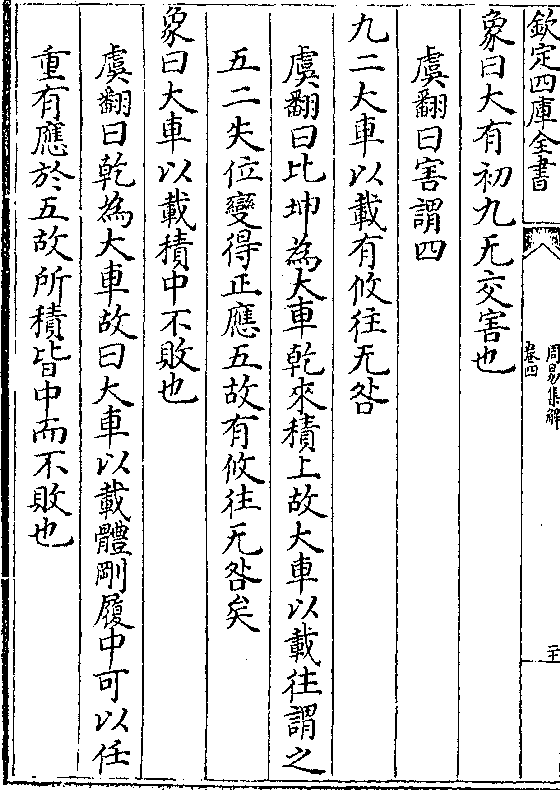 欽定四庫全書
周易集解
卷四
象曰大有初九无交害也
虞翻曰害謂四
九二大車以載有攸往无咎
虞翻曰比坤為大車乾來積上故大車以載往謂之
五二失位變得正應五故有攸往无咎矣
象曰大車以載積中不敗也
虞翻曰乾為大車故曰大車以載體剛履中可以任
重有應於五故所積皆中而不敗也